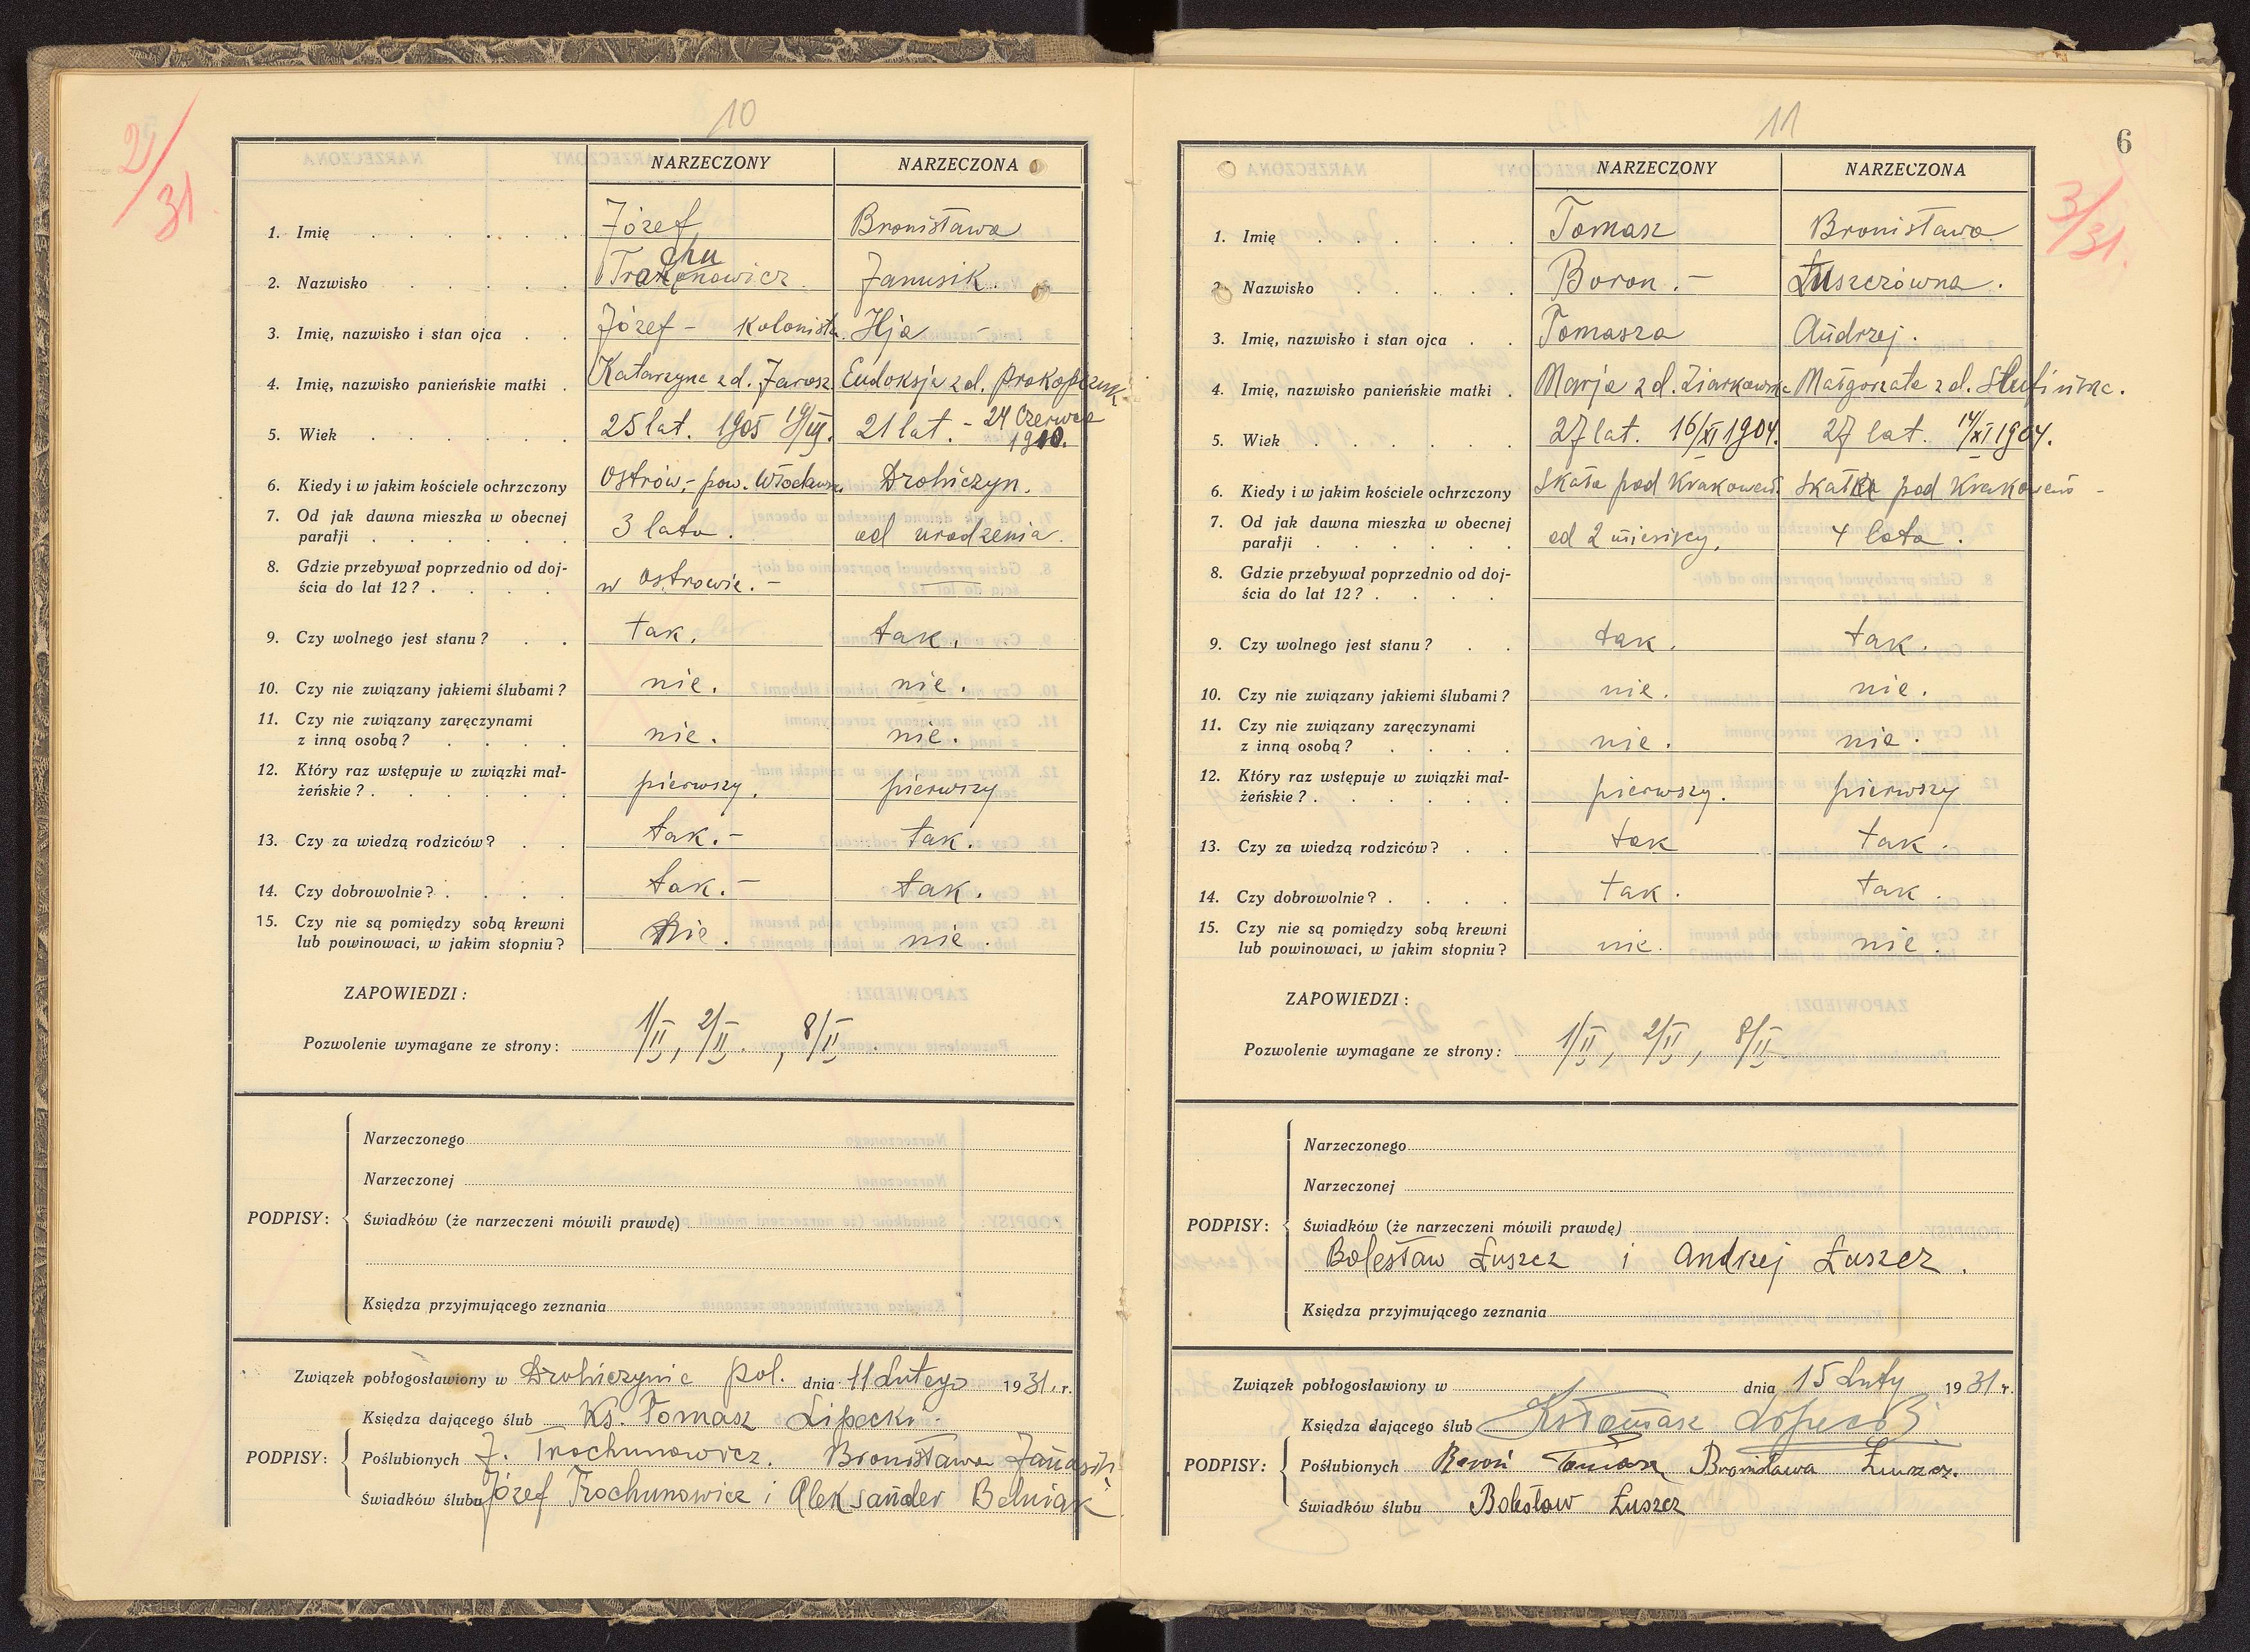 10
2/31
NARZECZONY NARZECZONA
1. Imię Józef Bronisława
2. Nazwisko Trochunowicz Janusik.
3. Imię, nazwisko i stan ojca Józef – kolonista. Ilja –
4. Imię, nazwisko panieńskie matki Katarzyna z d. Jarosz Eudoksja z d. Prokopczuk
5. Wiek 25 lat. 1905 21 lat. – 24 Czerwca 1910.
6. Kiedy i w jakim kościele ochrzczony Ostrów, – pow. Włodawski Drohiczyn.
7. Od jak dawna mieszka w obecnej
parafji 3 lata. od urodzenia.
8. Gdzie przebywał poprzednio od doj-
ścia do lat 12? w Ostrowie. – —
9. Czy wolnego jest stanu? tak. tak.
10. Czy nie związany jakiemi ślubami? nie. nie.
11. Czy nie związany zaręczynami
z inną osobą? nie. nie.
12. Który raz wstępuje w związki mał-
żeńskie? pierwszy. pierwszy
13. Czy za wiedzą rodziców? tak. – tak.
14. Czy dobrowolnie? tak. – tak.
15. Czy nie są pomiędzy sobą krewni
lub powinowaci, w jakim stopniu? nie. nie.
ZAPOWIEDZI:
Pozwolenie wymagane ze strony: 1/II, 2/II, 8/II.
PODPISY:
Narzeczonego
Narzeczonej
Świadków (że narzeczeni mówili prawdę)
Księdza przyjmującego zeznania
Związek pobłogosławiony w Drohiczynie pol. dnia 11 Lutego 1931. r.
Księdza dającego ślub Ks. Tomasz Lipecki
PODPISY:
Poślubionych J. Trochunowicz. Bronisława Janusik
Świadków ślubu Józef Trochunowicz i Aleksander Belniak
11
6
3/31.
NARZECZONY NARZECZONA
1. Imię Tomasz Bronisława
2. Nazwisko Boron. – Łuszczówna.
3. Imię, nazwisko i stan ojca Tomasza Andrzej.
4. Imię, nazwisko panieńskie matki Marja z d. Ziarkowska Małgorzata z d.
5. Wiek 27 lat. 16/XI 1904. 27 lat. 14/XI 1904.
6. Kiedy i w jakim kościele ochrzczony Skała pod Krakowem. Skała pod Krakowem –
7. Od jak dawna mieszka w obecnej
parafji od 2 miesięcy. 4 lata.
8. Gdzie przebywał poprzednio od doj-
ścia do lat 12?
9. Czy wolnego jest stanu? tak. tak.
10. Czy nie związany jakiemi ślubami? nie. nie.
11. Czy nie związany zaręczynami
z inną osobą? nie. nie.
12. Który raz wstępuje w związki mał-
żeńskie? pierwszy. pierwszy
13. Czy za wiedzą rodziców? tak tak.
14. Czy dobrowolnie? tak. tak.
15. Czy nie są pomiędzy sobą krewni
lub powinowaci, w jakim stopniu? nie. nie.
ZAPOWIEDZI:
Pozwolenie wymagane ze strony: 1/II, 2/II, 8/II
PODPISY:
Narzeczonego
Narzeczonej
Świadków (że narzeczeni mówili prawdę)
Bolesław Łuszcz i Andrzej Łuszcz.
Księdza przyjmującego zeznania
Związek pobłogosławiony w dnia 15 Luty 1931 r.
Księdza dającego ślub Ks Tomasz Lipecki
PODPISY:
Poślubionych Boroń Tomasz Bronisława Łuszcz.
Świadków ślubu Bolesław Łuszcz